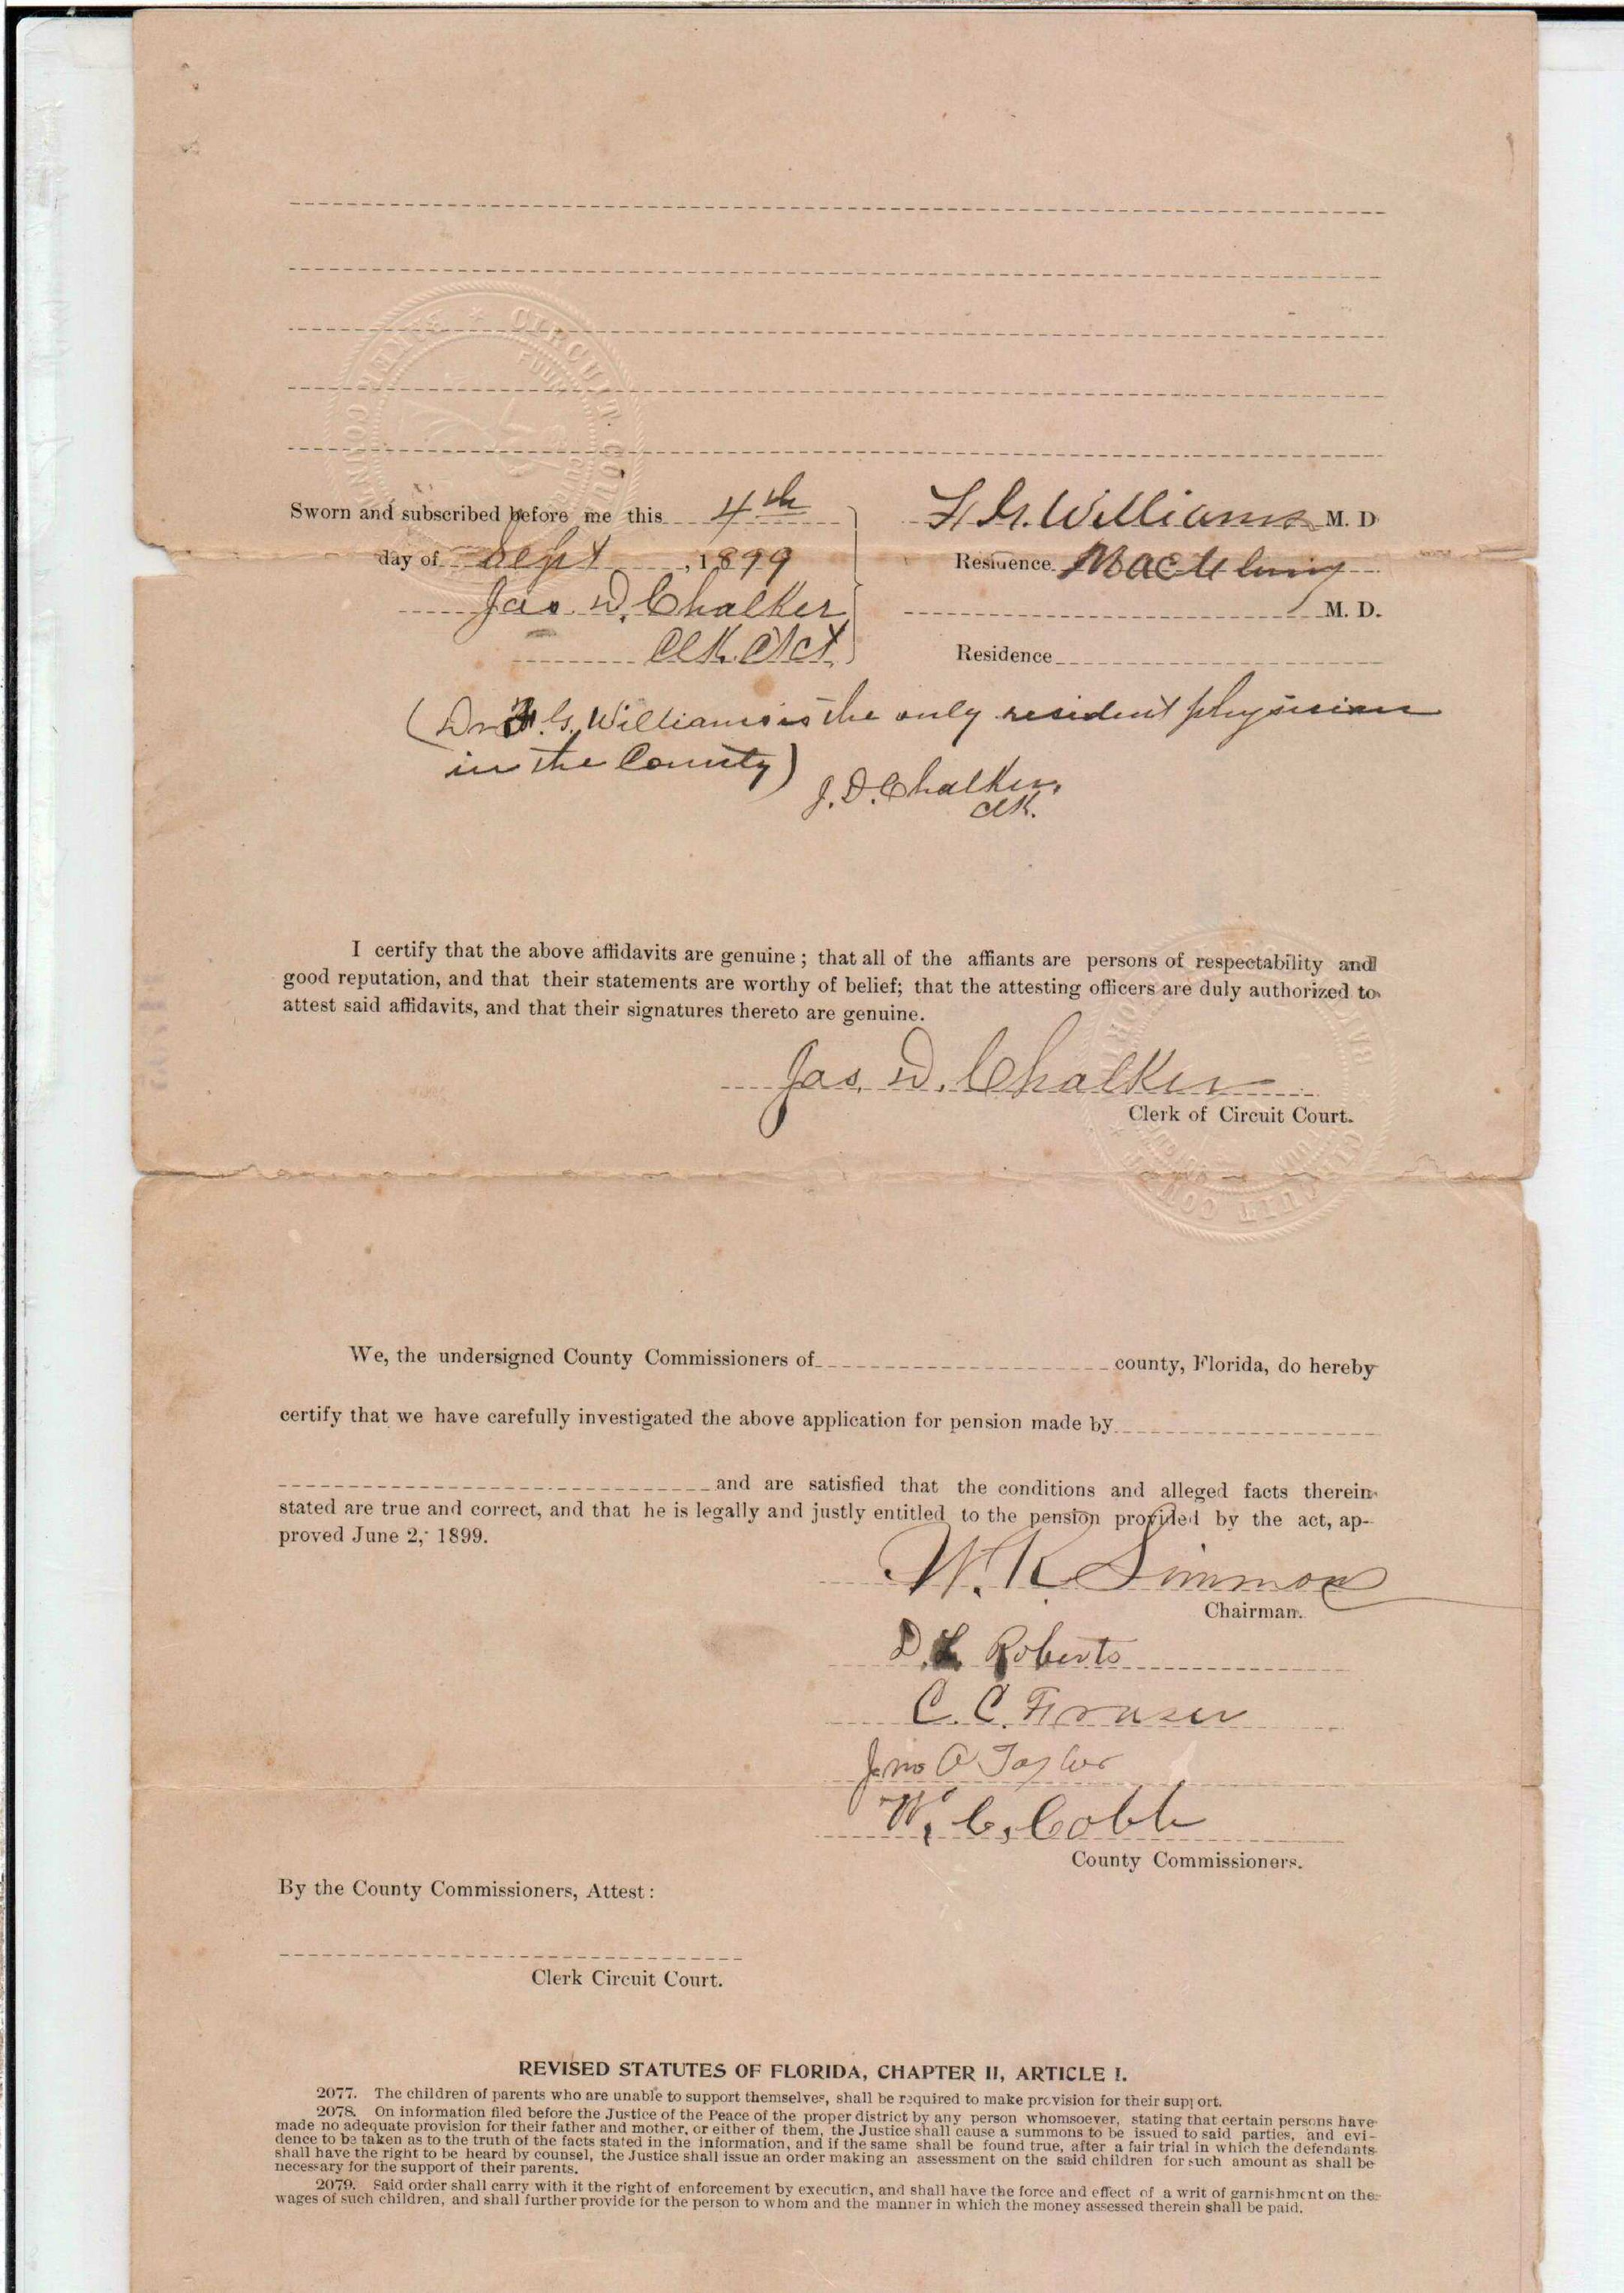 CIRCUIT COU
Sworn and subscribed before me this 4th
day of Sept, 1899
Jas. D. Chalker
Clk. Ct Ct.
F. G. Williams M. D
Residence Macclenny
M. D.
Residence
(Dr F. G. Williams is the only resident physician
in the County)
J. D. Chalker,
Clk.
I certify that the above affidavits are genuine; that all of the affiants are persons of respectability and
good reputation, and that their statements are worthy of belief; that the attesting officers are duly authorized to
attest said affidavits, and that their signatures thereto are genuine.
Jas. D. Chalker
Clerk of Circuit Court.
We, the undersigned County Commissioners of county, Florida, do hereby
certify that we have carefully investigated the above application for pension made by
and are satisfied that the conditions and alleged facts therein
stated are true and correct, and that he is legally and justly entitled to the pension provided by the act, ap-
proved June 2, 1899.
W. R. Simmons
Chairman.
D. L. Roberts
C. C. Fraser
Jno A Taylor
W. C. Cobb
County Commissioners.
By the County Commissioners, Attest:
Clerk Circuit Court.
REVISED STATUTES OF FLORIDA, CHAPTER II, ARTICLE I.
2077. The children of parents who are unable to support themselves, shall be required to make provision for their support.
2078. On information filed before the Justice of the Peace of the proper district by any person whomsoever, stating that certain persons have
made no adequate provision for their father and mother, or either of them, the Justice shall cause a summons to be issued to said parties, and evi-
dence to be taken as to the truth of the facts stated in the information, and if the same shall be found true, after a fair trial in which the defendants
shall have the right to be heard by counsel, the Justice shall issue an order making an assessment on the said children for such amount as shall be
necessary for the support of their parents.
2079. Said order shall carry with it the right of enforcement by execution, and shall have the force and effect of a writ of garnishment on the
wages of such children, and shall further provide for the person to whom and the manner in which the money assessed therein shall be paid.